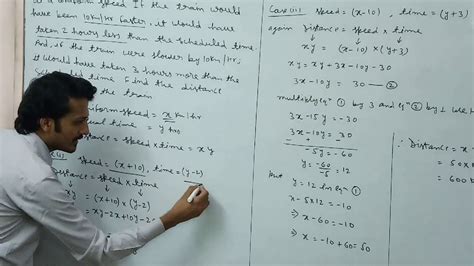 uniform speed If the train would
have been 10km/hr faster, it would have
taken 2 hours less than the scheduled time.
And, if the train were slower by 10km/hr,
it would have taken 3 hours more than the
time find the distance
the train
uniform speed = x km/hr
time = y
= x y
speed = (x+10), time = (y-2)
Distance = speed x time
xy = (x+10) x (y-2)
= xy-2x+10y-2
Case (iii) speed = (x-10), time = (y+3)
again Distance = speed x time
xy = (x-10) x (y+3)
xy = xy + 3x - 10y - 30
3x - 10y = 30 — ②
multiply eqn ① by 3 and eqn ② by
3x - 15y = -30
3x - 10y = 30
-5y = -60
y = -60/-5 = 12
Put y = 12 in eqn ①
x - 5x12 = -10
⇒ x - 60 = -10
⇒ x = -10+60 = 50
∴ Distance = x